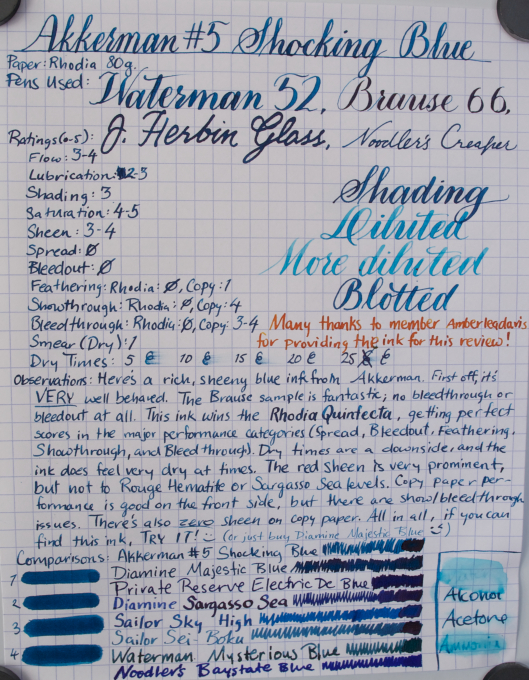 Akkerman #5 Shocking Blue
Paper: Rhodia 80g.
Pens Used: Waterman 52, Brause 66,
J. Herbin Glass, Noodler's Creaper
Ratings (0-5):
Flow: 3-4
Lubrication: 2-3
Shading: 3
Saturation: 4-5
Sheen: 3-4
Spread: Ø
Bleedout: Ø
Feathering: Rhodia: Ø, Copy: 1
Showthrough: Rhodia: Ø, Copy: 4
Bleedthrough: Rhodia: Ø, Copy: 3-4
Smear (Dry): 1
Dry Times: 5 10 15 20 25
Shading
Diluted
More diluted
Blotted
Many thanks to member Amberleadavis
for providing the ink for this review!
Observations: Here's a rich, sheeny blue ink from Akkerman. First off, it's
VERY well behaved. The Brause sample is fantastic; no bleedthrough or
bleedout at all. This ink wins the Rhodia Quintecta, getting perfect
scores in the major performance categories (Spread, Bleedout, Feathering,
Showthrough, and Bleedthrough). Dry times are a downside, and the
ink does feel very dry at times. The red sheen is very prominent,
but not to Rouge Hematite or Sargasso Sea levels. Copy paper per-
formance is good on the front side, but there are show/bleedthrough
issues. There's also zero sheen on copy paper. All in all, if you can
find this ink, TRY IT! :) (or just buy Diamine Majestic Blue :))
Comparisons: Akkerman #5 Shocking Blue
Diamine Majestic Blue
Private Reserve Electric Dc Blue
Diamine Sargasso Sea
Sailor Sky High
Sailor Sei-Boku
Waterman Mysterious Blue
Noodler's Baystate Blue
1
2
3
4
Alcohol
Acetone
Ammonia